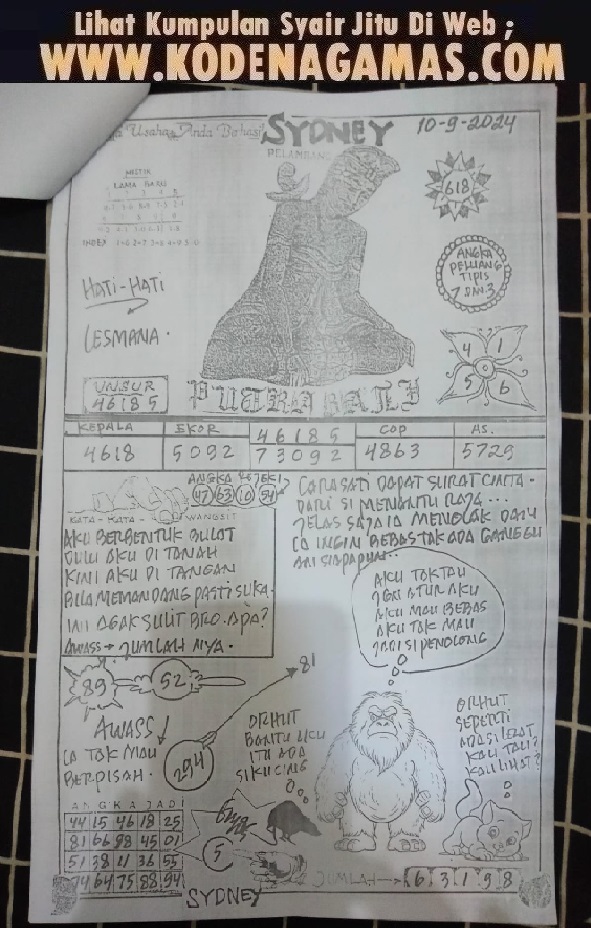 Lihat Kumpulan Syair Jitu Di Web ;
WWW.KODENAGAMAS.COM
Usaha Anda Berhasil
SYDNEY
10-9-2024
PELAMBANG
MISTIK
LAMA BARU
INDEX
618
ANGKA
PELUANG
TIPIS
7 8 N. 3
HATI-HATI
LESMANA.
4 1
5 6
UNSUR
46185
PUTRA BALI
KEPALA
EKOR
46185
COP
AS.
4618
5092
73092
4863
5729
47 63 10 54
KATA - KATA - WANGSIT
AKU BERBENTUK BULAT
DULU AKU DI TANAH
KINI AKU DI TANGAN
BILA MEMANDANG PASTI SUKA.
INI AGAK SULIT BRO. APA?
AWASS → JUMLAH NYA.
CARASATI DAPAT SURAT CINTA.
DARI SI MENANTU RAJA...
JELAS SAJA IA MENOLAK
IA INGIN BEBAS TAK ADA GANGGU
ARI SIAPAPUN...
AKU TAK TAU
AKU
AKU MAU BEBAS
AKU TAK MAU
JADI SI PENOLONG
89
52
81
AWASS
IA TAK MAU
BERPISAH.
294
BANTU AKU
ITU ADA
SI KUCING
SEPERTI
KAU TAU?
KAU LIHAT?
ANGKA JADI
44 15 46 18 25
81 66 98 45 01
51 38 11 36 55
74 64 75 88 94
5
SYDNEY
JUMLAH → 6 3 1 9 8